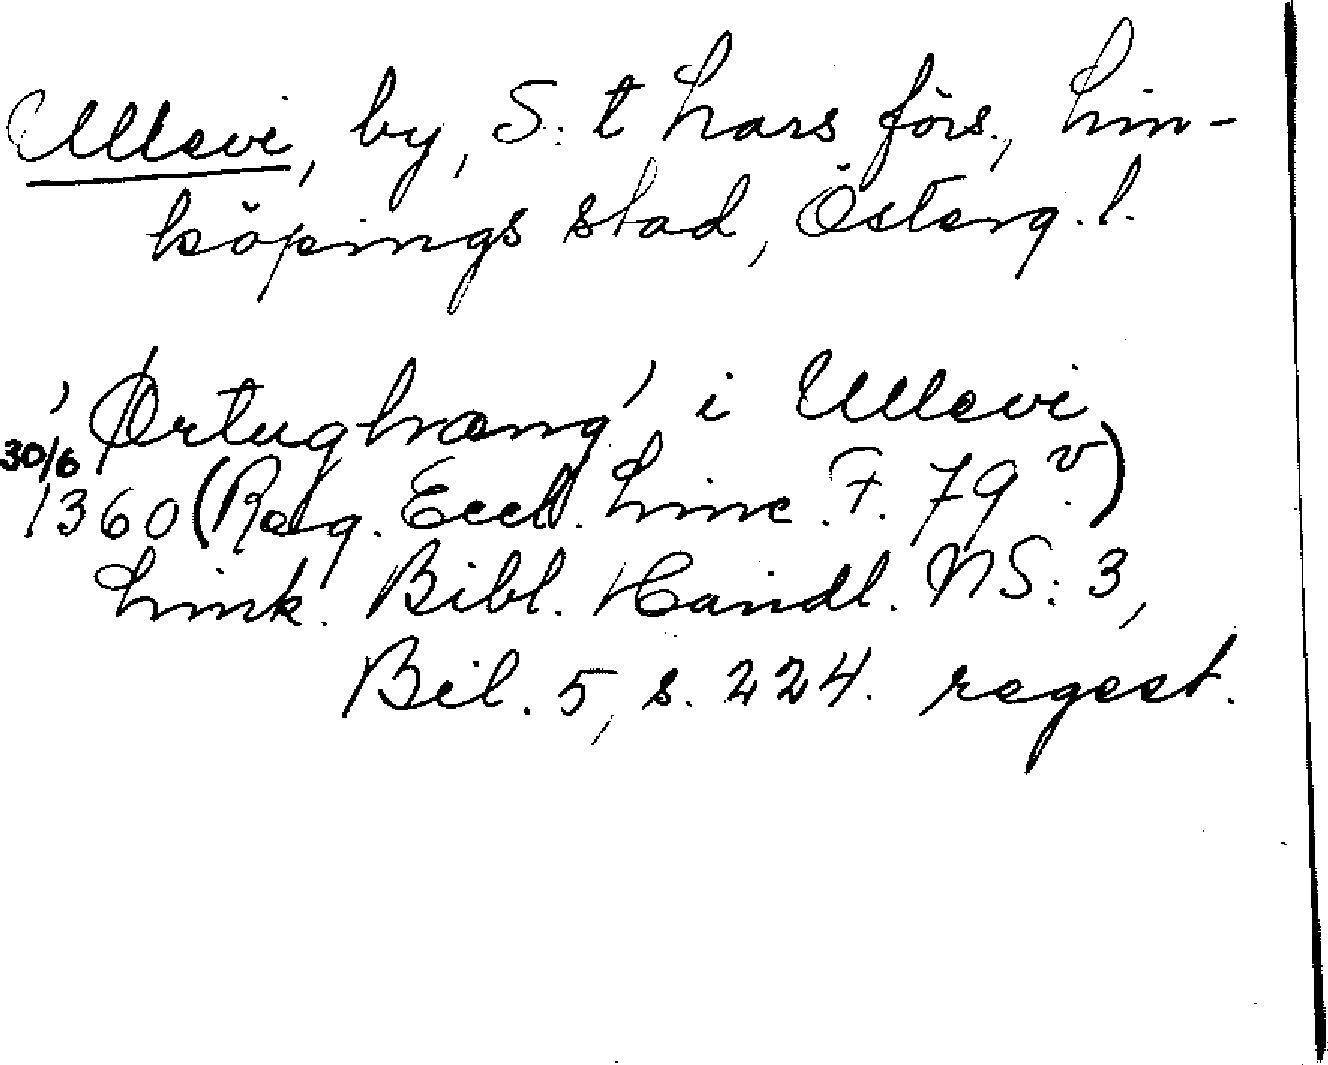 Ullevi, by, S:t Lars förs., Lin-
köpings stad, Österg.l.
'Ørtughræng' i Ullevi
30/6
1360 (Reg. Eccl. Linc. F. 79 v.)
Link. Bibl. Handl. NS: 3,
Bil. 5, s. 224. regest.